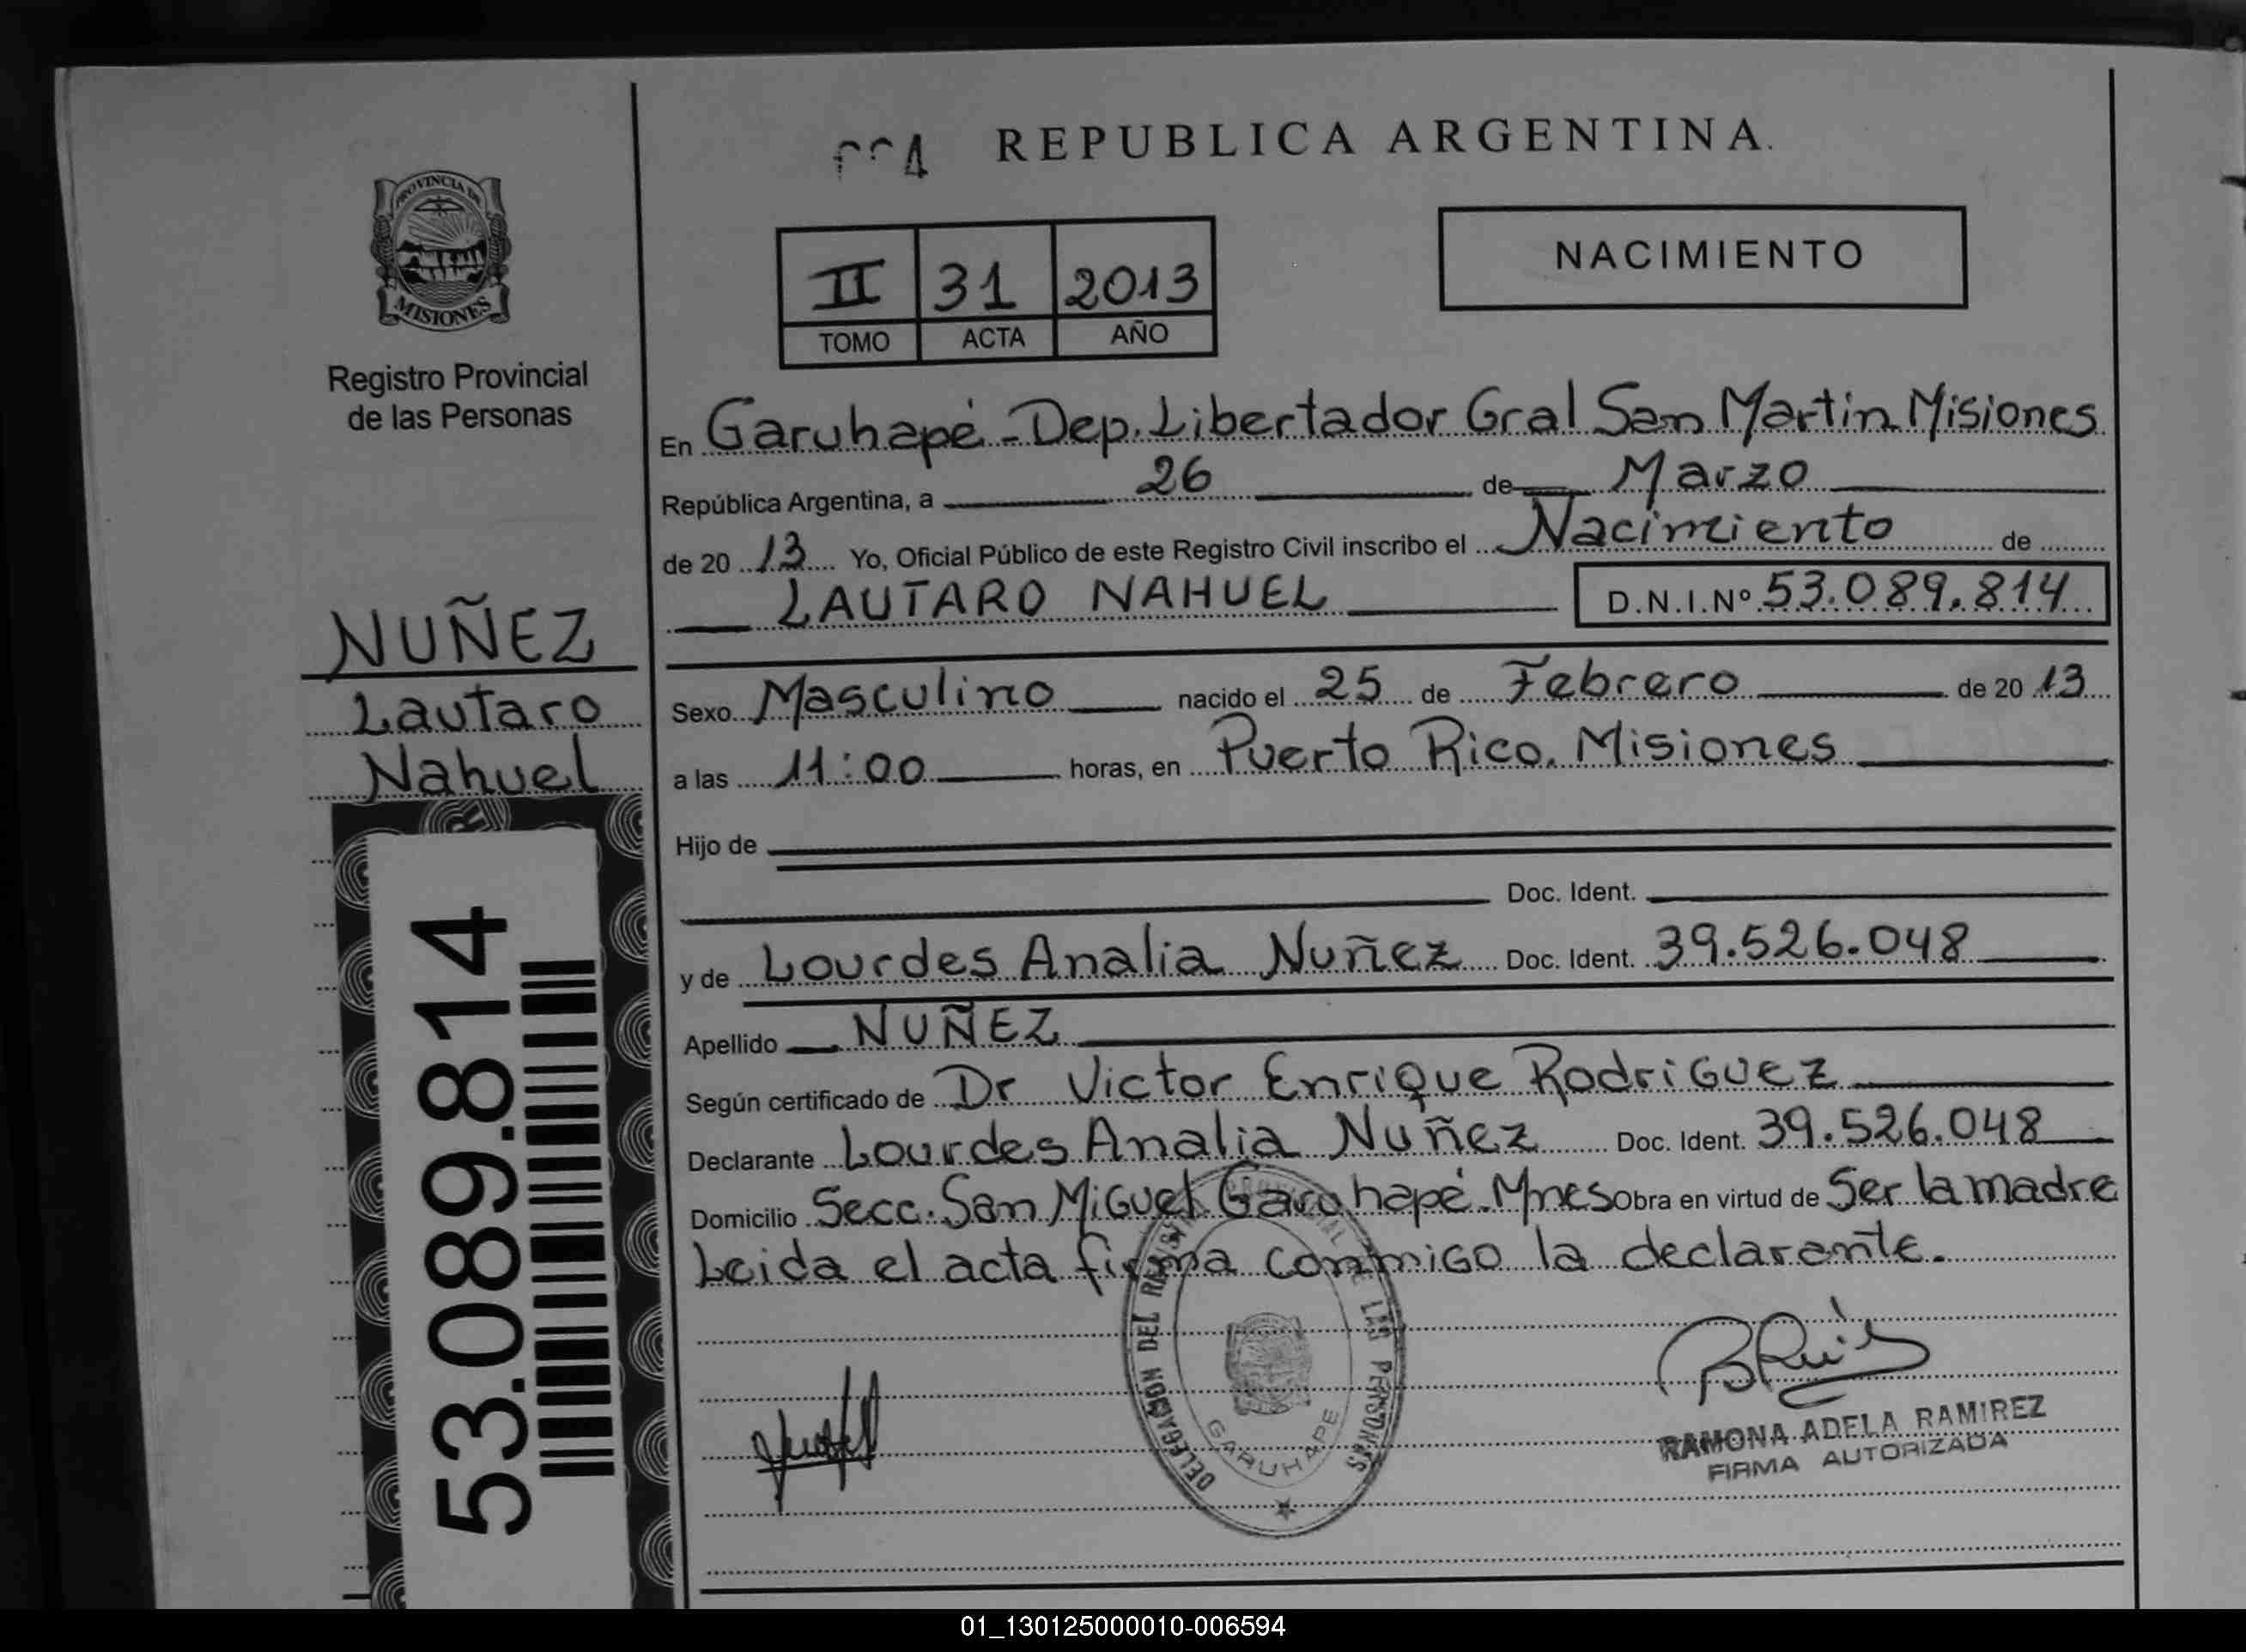 REPUBLICA ARGENTINA.
PROVINCIA DE
MISIONES
Registro Provincial
de las Personas
NUÑEZ
Lautaro
Nahuel
53.089.814
II 31 2013
TOMO ACTA AÑO
NACIMIENTO
En Garuhapé - Dep. Libertador Gral San Martin Misiones
República Argentina, a 26 de Marzo
de 20 13 Yo, Oficial Público de este Registro Civil inscribo el Nacimiento de
LAUTARO NAHUEL D.N.I.Nº 53.089.814
Sexo Masculino nacido el 25 de Febrero de 20 13
a las 11:00 horas, en Puerto Rico. Misiones
Hijo de
Doc. Ident.
y de Lourdes Analia Nuñez Doc. Ident. 39.526.048
Apellido NUÑEZ
Según certificado de Dr Victor Enrique Rodriguez
Declarante Lourdes Analia Nuñez Doc. Ident. 39.526.048
Domicilio Secc. San Miguel Garuhapé. Mnes Obra en virtud de Ser la madre
Leida el acta firma conmigo la declarante.
DELEGACION DEL LAS PERSONAS
GARUHAPE
RAMONA ADELA RAMIREZ
FIRMA AUTORIZADA
01_130125000010-006594